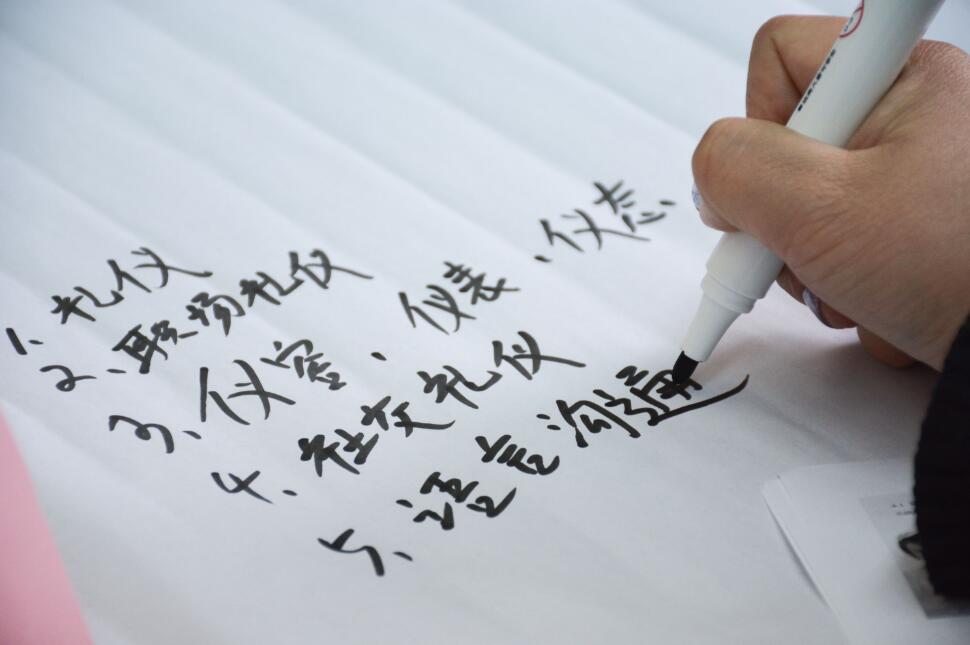 1. 礼仪
2、职场礼仪
3、仪容、仪表、仪态
4、社交礼仪
5、语言沟通